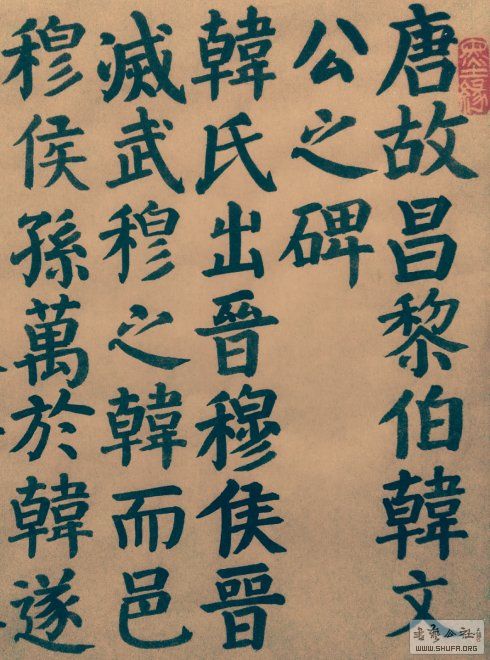 唐故昌黎伯韓文
公之碑
韓氏出晉穆侯晉
滅武穆之韓而邑
穆侯孫萬於韓遂
WWW.SHUFA.ORG